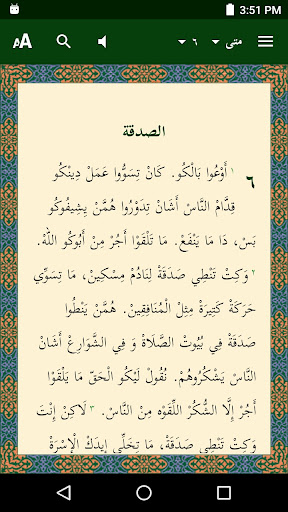 3:51 PM
متى ٦
AA
الصدقة
٦ ١ أَوْعُوا بَالْكُو. كَانْ تِسَوُّوا عَمَلْ دِينْكُو
قِدَّامْ النَّاسْ أَشَانْ تِدَوْرُوا هُمَّنْ بِشِيفُوكُو
بَسْ، دَا مَا يَنْفَعْ. مَا تَلْقَوْا أَجُرْ مِنْ أَبُوكُو اللّٰهْ.
٢ وَكِتْ تَنْطِي صَدَقَةْ لِنَادُمْ مِسْكِينْ، مَا تِسَوِّي
حَرَكَةْ كَتِيرَةْ مِثِلْ الْمُنَافِقِينْ. هُمَّنْ يَنْطُوا
صَدَقَةْ فِي بِيُوتْ الصَّلَاةْ وَ فِي الشَّوَارِعْ أَشَانْ
النَّاسْ يَشْكُرُوهُمْ. نُقُولْ لَيْكُو الْحَقّ مَا يَلْقَوْا
أَجُرْ إِلَّا الشُّكُرْ اللِّقَوْه مِنْ النَّاسْ. ٣ لَاكِنْ إِنْتَ
وَكِتْ تَنْطِي صَدَقَةْ، مَا تِخَلِّي إِيدَكْ الْإِسْرَةْ